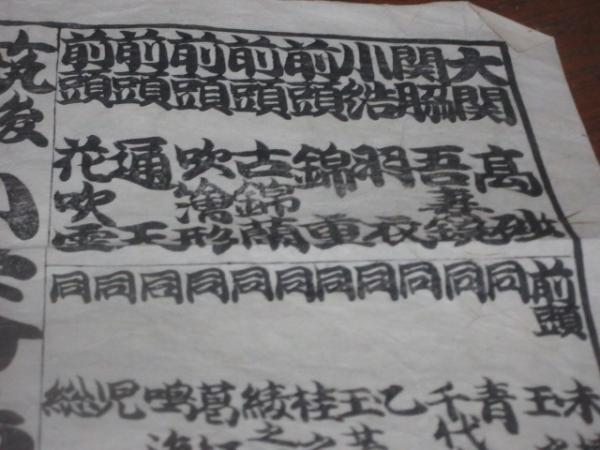 大関 高砂
関脇 吾妻鏡
小結 羽衣
前頭 錦重
前頭 古錦蘭
前頭 吹
前頭 通天
前頭 花吹雪
前頭 末
同 玉
同 青
同 千代
同 乙
同 玉
同 桂之
同 綾之
同 葛
同 鳴海
同 児
同 総
筑後